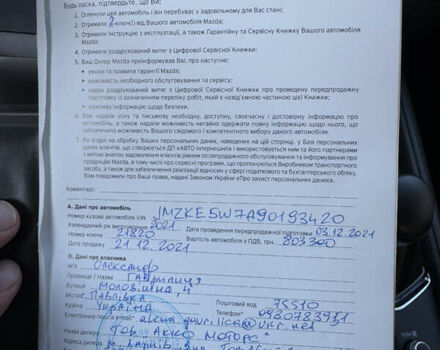 Будь ласка, підтвердьте, що Ви:
1. Оглянули цей автомобіль і він перебуває у задовільному для Вас стані;
2. Отримали 2 ключ(і) від Вашого автомобіля Mazda;
3. Отримали інструкцію з експлуатації, а також Гарантійну та Сервісну Книжку Вашого автомобіля
Mazda;
4. Отримали роздрукований витяг з Цифрової Сервісної Книжки;
5. Ваш Дилер Mazda проінформував Вас про наступне:
• умови та правила гарантії Mazda;
• важливість необхідного обслуговування та сервісу;
• надав роздрукований витяг з Цифрової Сервісної Книжки про проведену передпродажну
підготовку із зазначенням переліку робіт, який є невід'ємною частиною цієї Книжки;
• важливу інформацію щодо безпеки.
6. Вам надали усну та письмову необхідну, доступну, своєчасну і достовірну інформацію про
автомобіль, а також надали можливість негайно одержати повну інформацію щодо нього, що
забезпечило можливість Вашого свідомого і компетентного вибору даного автомобіля.
7. Ви згодні на обробку Ваших персональних даних, наведених на цій сторінці, у Базі персональних
даних клієнтів, що створюється ДП «АВТО Інтернешнл» і використовується ним та його партнерами
з метою аналізу задоволення клієнтів рівнем післяпродажного обслуговування та інформування про
продукцію Mazda, в тому числі про сервісні програми, що пропонуються Виробником транспортного
засобу, а також для забезпечення реалізації відносин у сфері податкового та бухгалтерського обліку.
Вам повідомили про Ваші права, надані Законом України «Про захист персональних даних».
А. Дані про автомобіль
Номер кузова автомобіля VIN JMZKE5W7A90193420
Календарний рік 2021
Номер ключа 21820 Дата проведення передпродажної підготовки 03.12.2021
Дата продажу 21.12.2021 Вартість автомобіля з ПДВ, грн. 803300
В. Дані про власника
Ім'я Олександр
Прізвище / Назва Гаврилиця
Вулиця Молодіжна, 4
Місто Павлівка Поштовий код 75510
Країна Україна Телефон* 0980783931
Електронна пошта
Назва дилера ТОВ АККО МОТОРС
Адреса дилера